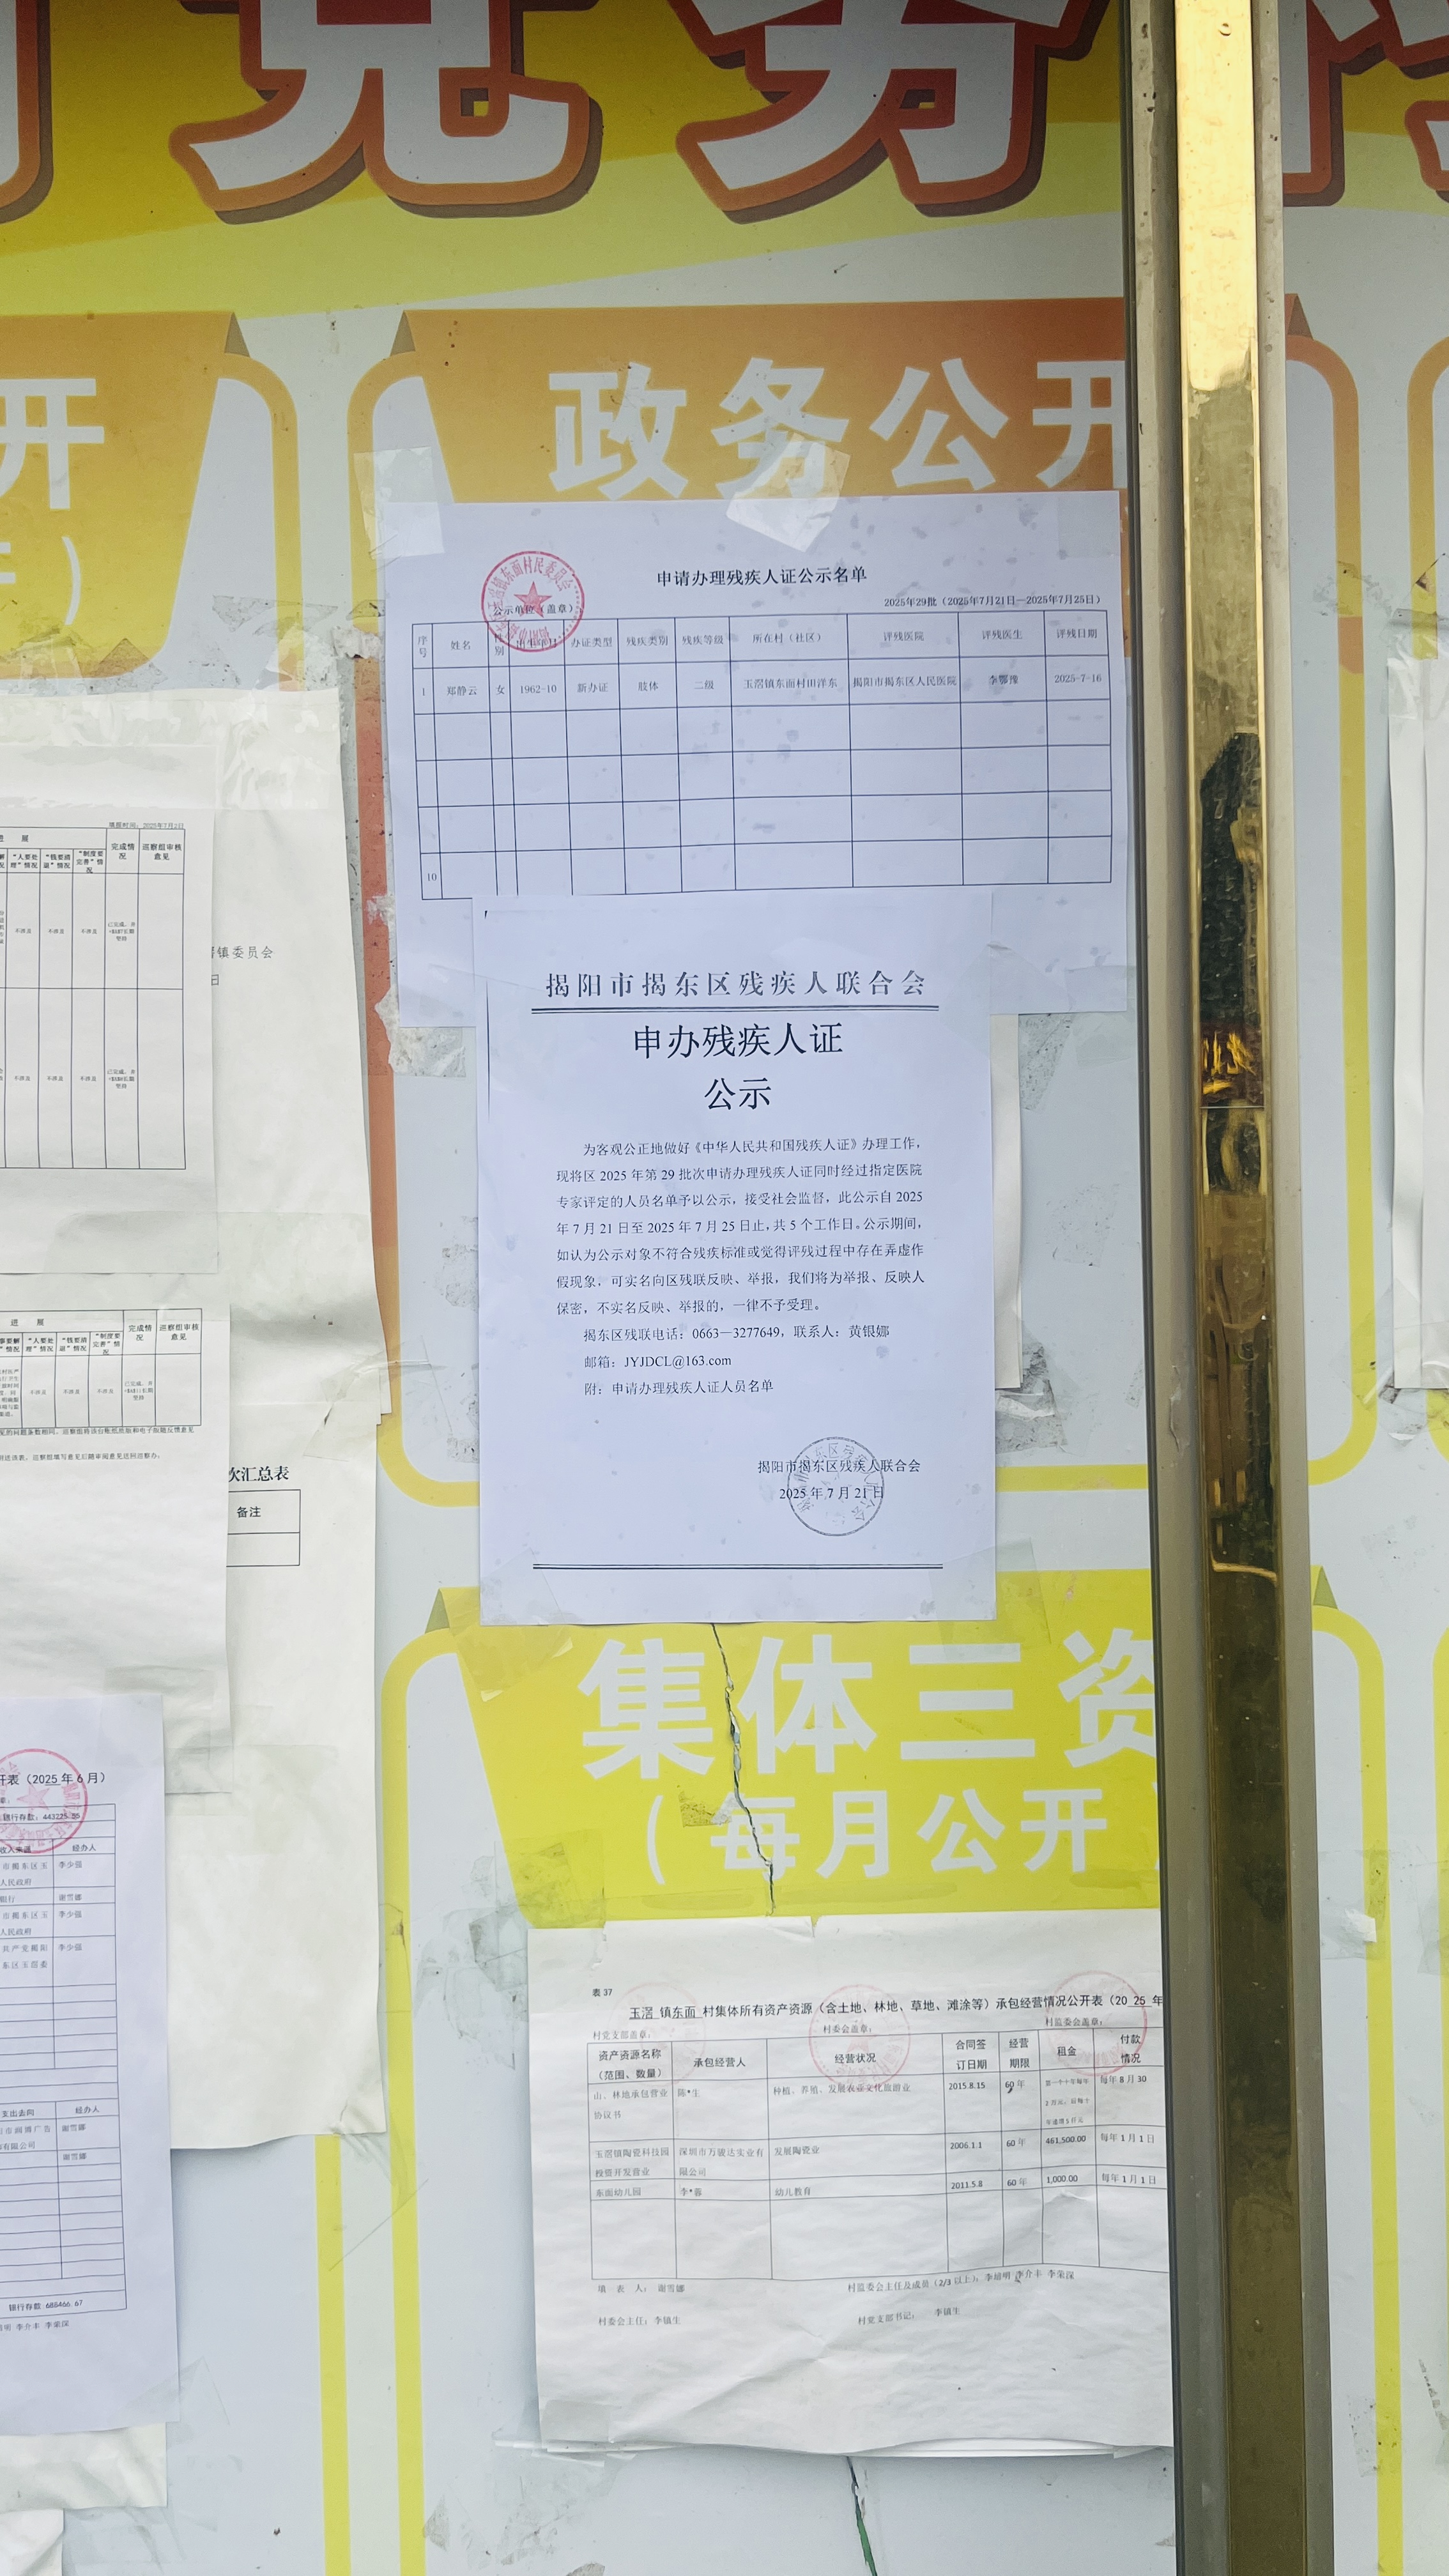 政务公开
申请办理残疾人证公示名单
公示单位（盖章）
2025年29批（2025年7月21日—2025年7月25日）
序号 姓名 性别 出生年月 办证类型 残疾类别 残疾等级 所在村（社区） 评残医院 评残医生 评残日期
1 郑静云 女 1962-10 新办证 肢体 二级 玉滘镇东面村田洋东 揭阳市揭东区人民医院 李鄂豫 2025-7-16
10
揭阳市揭东区残疾人联合会
申办残疾人证
公示
为客观公正地做好《中华人民共和国残疾人证》办理工作，
现将区 2025 年第 29 批次申请办理残疾人证同时经过指定医院
专家评定的人员名单予以公示，接受社会监督，此公示自 2025
年 7 月 21 日至 2025 年 7 月 25 日止，共 5 个工作日。公示期间，
如认为公示对象不符合残疾标准或觉得评残过程中存在弄虚作
假现象，可实名向区残联反映、举报，我们将为举报、反映人
保密，不实名反映、举报的，一律不予受理。
揭东区残联电话：0663—3277649，联系人：黄银娜
邮箱：JYJDCL@163.com
附：申请办理残疾人证人员名单
揭阳市揭东区残疾人联合会
2025 年 7 月 21 日
集体三资
（每月公开）
表 37
玉滘 镇东面 村集体所有资产资源（含土地、林地、草地、滩涂等）承包经营情况公开表（20 25 年
村党支部盖章： 村委会盖章： 村监委会盖章：
资产资源名称（范围、数量） 承包经营人 经营状况 合同签订日期 经营期限 租金 付款情况
山、林地承包营业协议书 陈*生 种植、养殖、发展农业文化旅游业 2015.8.15 60 年 每年 8 月 30
玉滘镇陶瓷科技园投资开发营业 深圳市万骏达实业有限公司 发展陶瓷业 2006.1.1 60 年 461,500.00 每年 1 月 1 日
东面幼儿园 李*蓉 幼儿教育 2011.5.8 60 年 1,000.00 每年 1 月 1 日
填 表 人：谢雪娜
村监委会主任及成员（2/3 以上）：李培明 李介丰 李荣深
村委会主任：李镇生
村党支部书记： 李镇生
开
填报时间：2025年7月2日
进 展 完成情况 巡察组审核意见
“人要处理”情况 “钱要清退”情况 “制度要完善”情况
不涉及 不涉及 不涉及
不涉及 不涉及 不涉及
镇委员会
日
进 展 完成情况 巡察组审核意见
“人要处理”情况 “钱要清退”情况 “制度要完善”情况
不涉及 不涉及 不涉及
次汇总表
备注
开表（2025 年 6 月）
银行存款：
收入来源 经办人
市揭东区玉 李少强
人民政府
银行 谢雪娜
市揭东区玉 李少强
人民政府
共产党揭阳 李少强
东区玉滘委
支出去向 经办人
谢雪娜
有限公司
谢雪娜
银行存款 688466.67
李介丰 李荣深